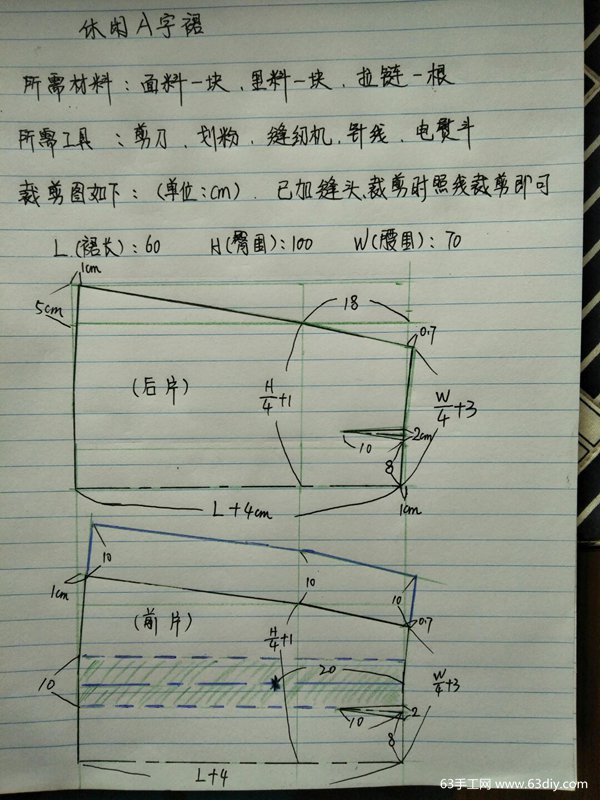 休闲A字裙
所需材料：面料一块、里料一块、拉链一根
所需工具：剪刀、划粉、缝纫机、针线、电熨斗
裁剪图如下：（单位：cm）.已加缝头、裁剪时照线裁剪即可
L（裙长）：60 H（臀围）：100 W（腰围）：70
1cm
5cm
18
0.7
（后片）
H/4+1
W/4+3
2cm
10
8
L+4cm
1cm
10
10
10
1cm
0.7
（前片）
H/4+1
20
10
W/4+3
2
10
8
L+4
63手工网 www.63diy.com